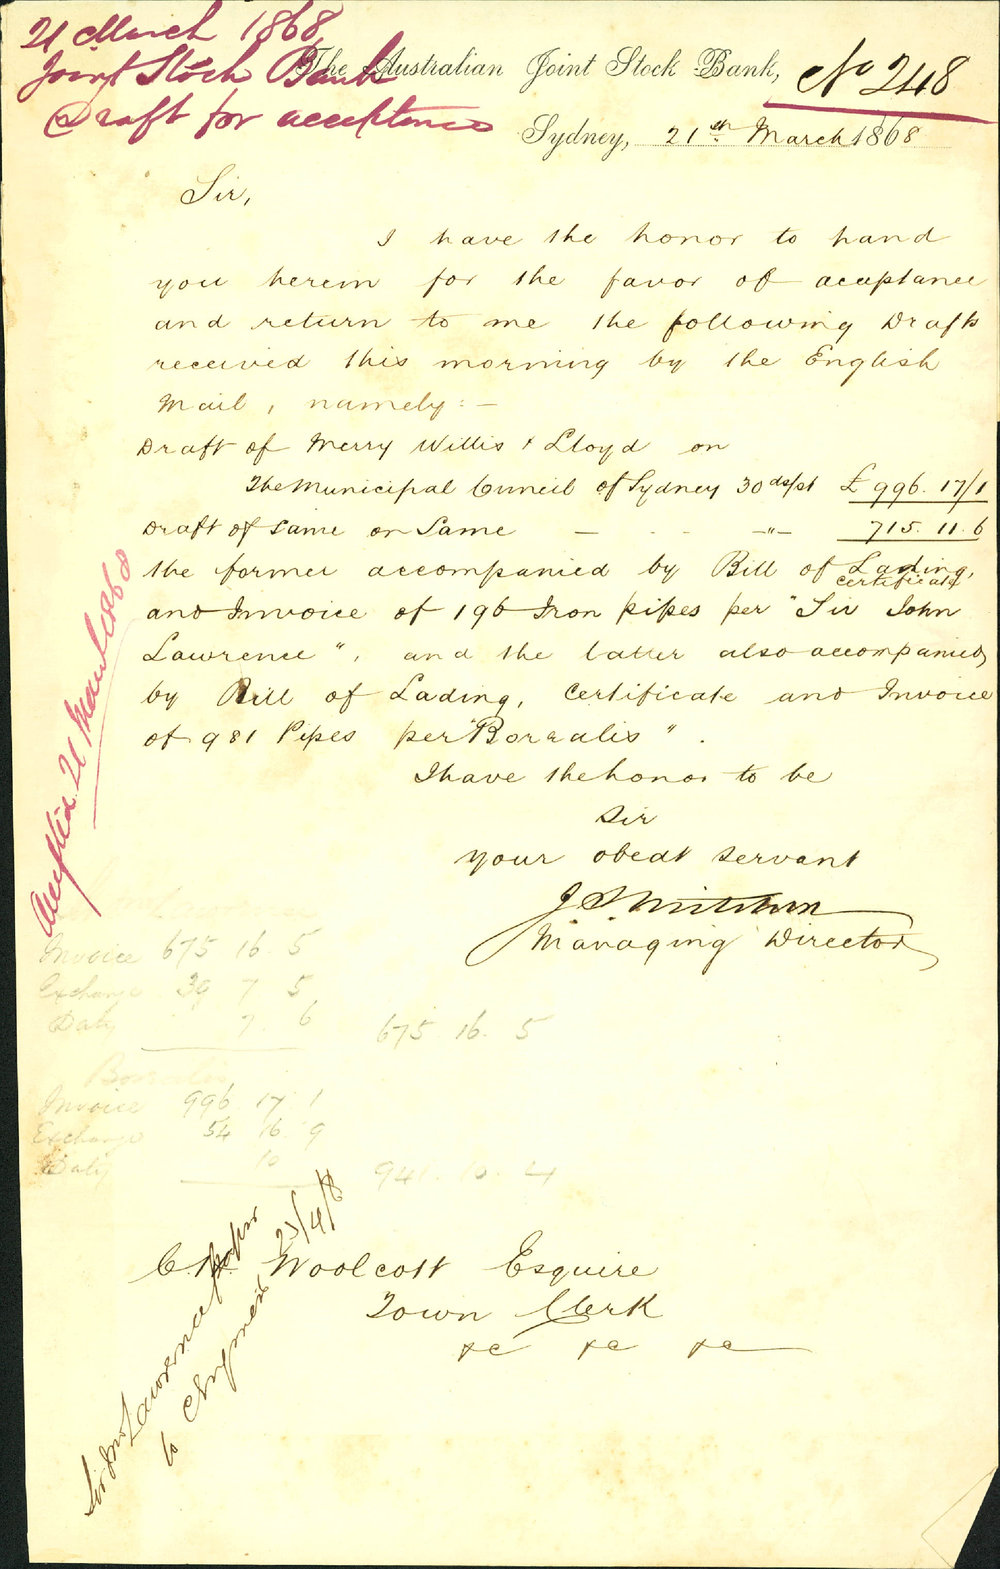 21 March 1868
Joint Stock Bank
Draft for acceptance
The Australian Joint Stock Bank,
No 248
Sydney, 21st March 1868
Sir,
I have the honor to hand
you herein for the favor of acceptance
and return to me the following Drafts
received this morning by the English
Mail, namely:-
Draft of Merry Willis & Lloyd on
The Municipal Council of Sydney 30 ds/st £ 996. 17/1
Draft of same on Same - - - -"- 715. 11. 6
the former accompanied by Bill of Lading,
certificate
and Invoice of 196 Iron pipes per "Sir John
Lawrence", and the latter also accompanied
by Bill of Lading, Certificate and Invoice
of 981 Pipes per "Borealis".
I have the honor to be
Sir
your obedt servant
Managing Director
Accepted 21 March 1868
Lawrence
Invoice 675 16 5
Exchange 39 7 5
Duty 7. 6
675. 16. 5
Borealis
Invoice 996 17 1
Exchange 54 16 9
Duty 10
941. 10. 4
C.H. Woolcott Esquire
Town Clerk
&c &c &c
Sir Jno Lawrence papers
to 23/4/8